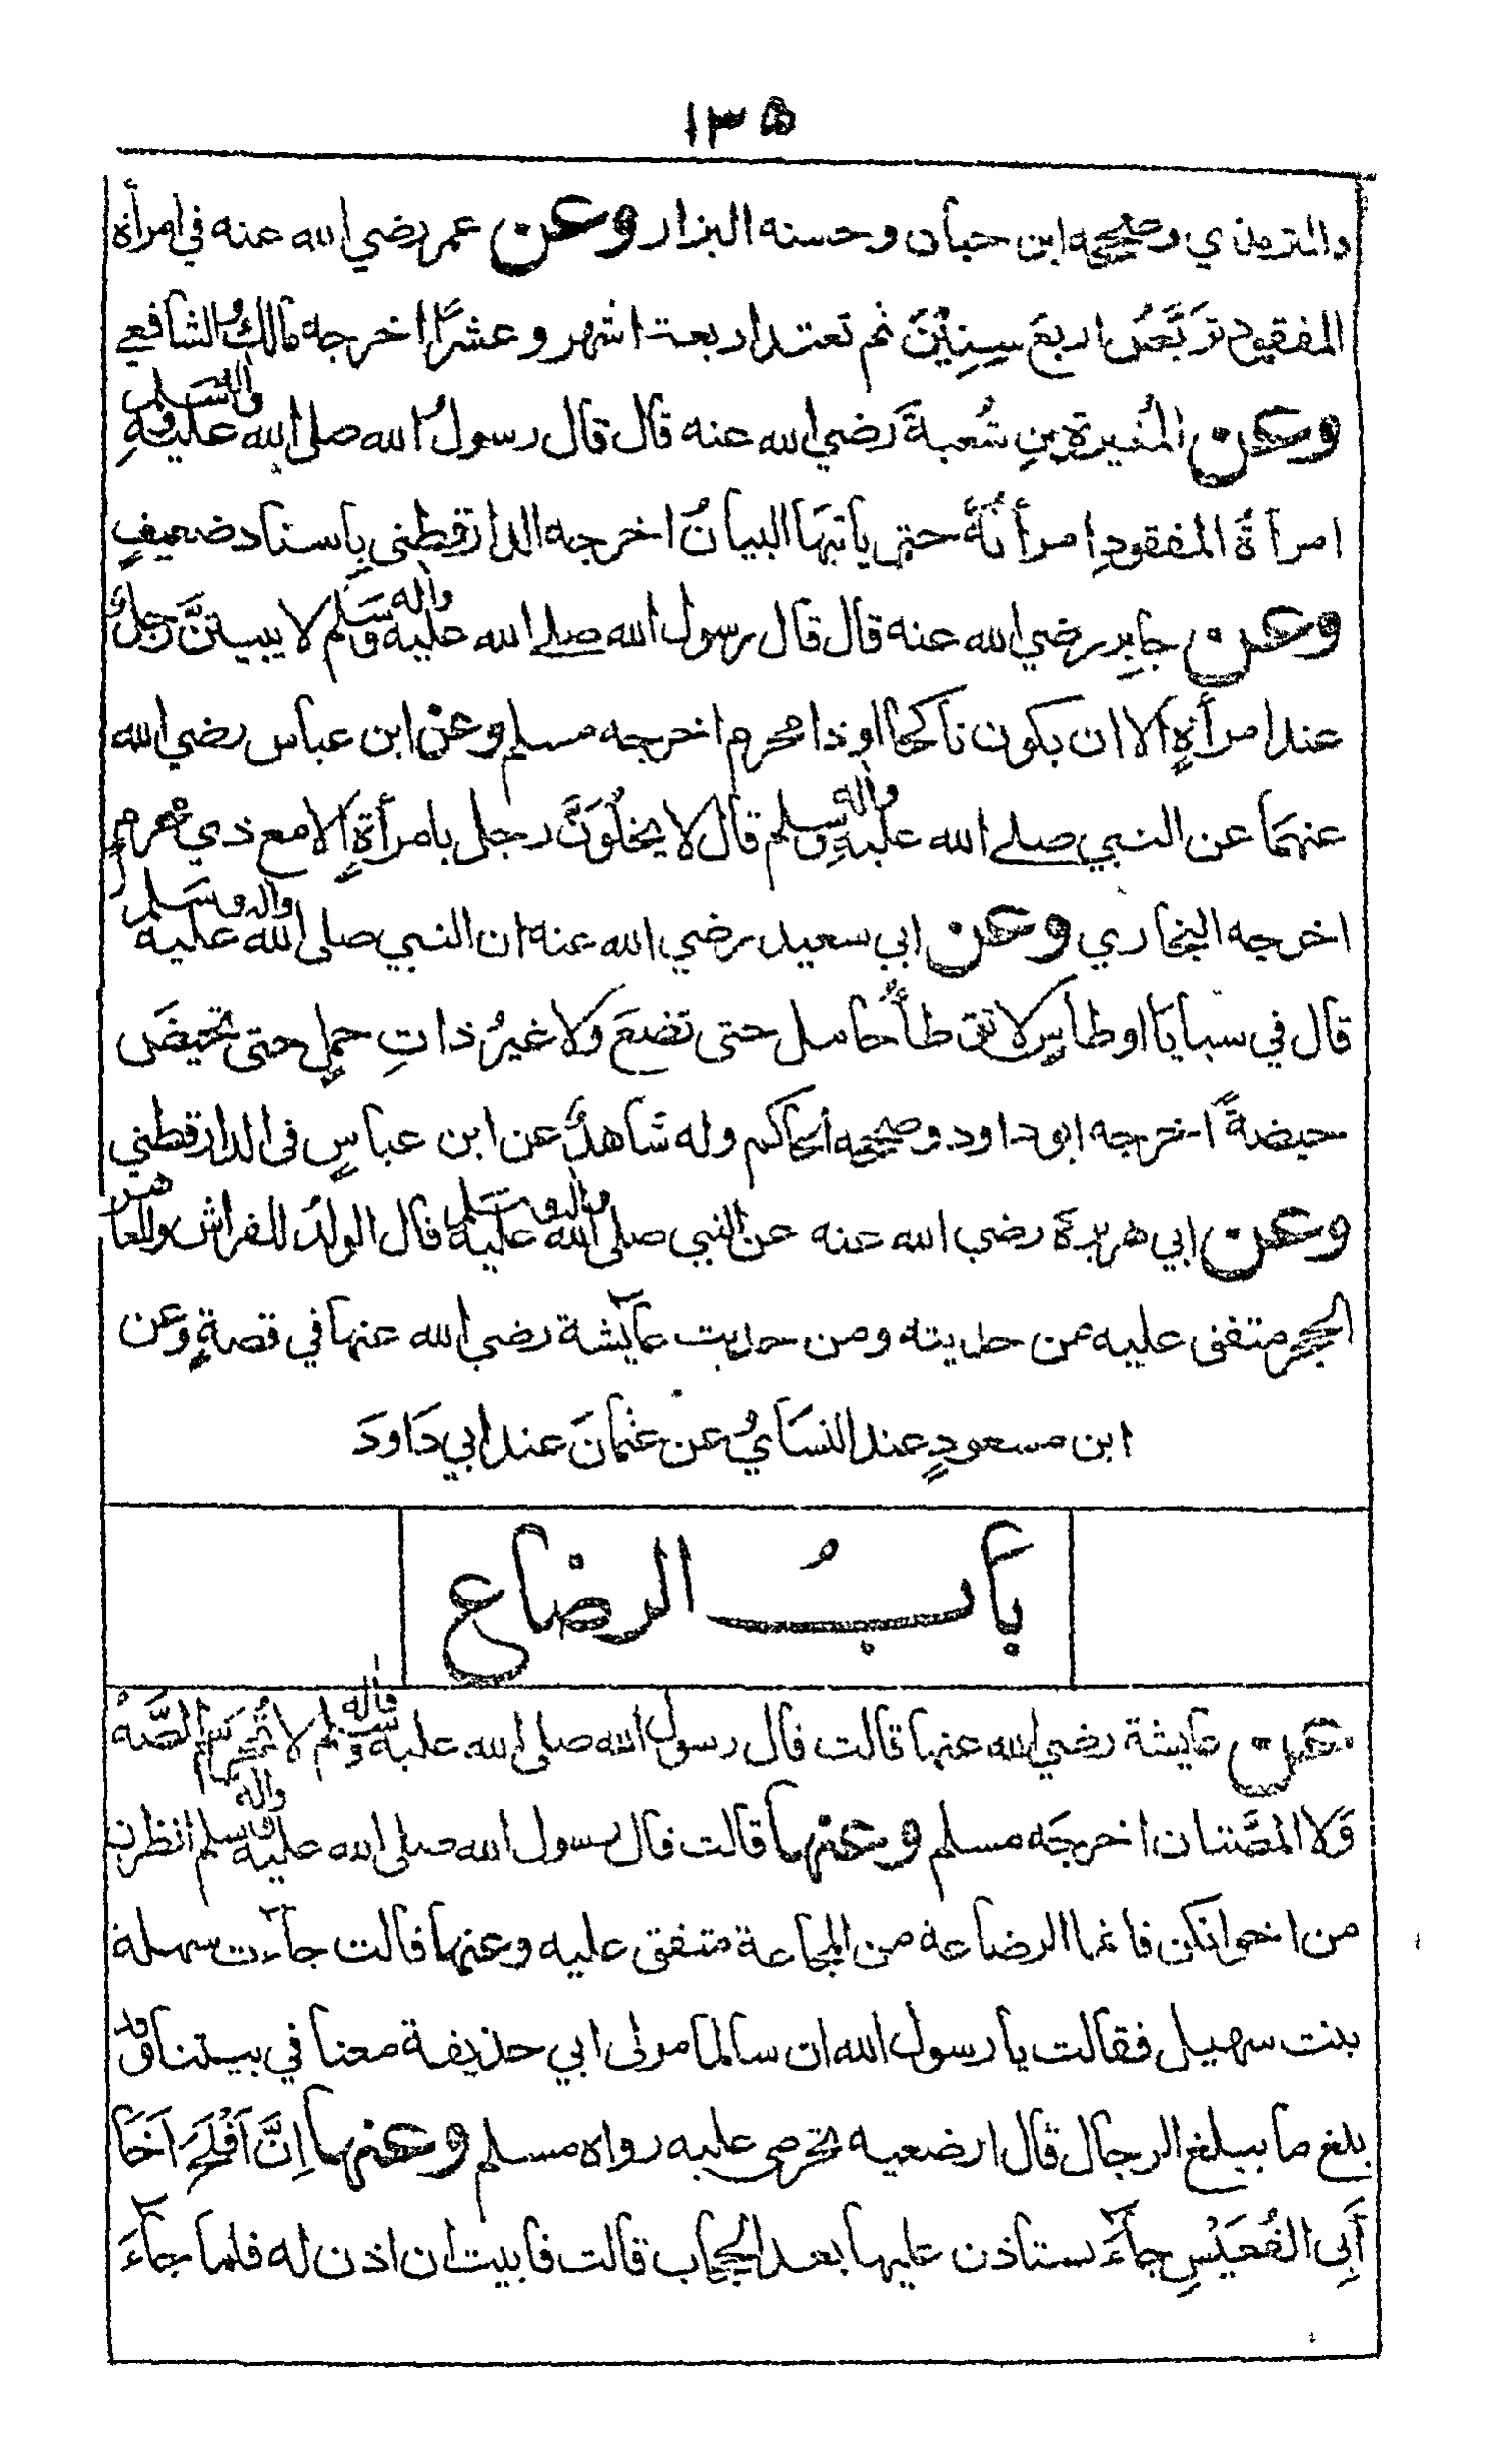 ١٣٥
والترمذي وصححه ابن حبان وحسنه البزار وعن عمر رضي الله عنه في امرأة
المفقود تَرَبَّصُ اربعَ سِنِيْنَ ثم تعتد اربعة اشهر وعشرًا اخرجه مالكٌ والشافعي
وعن المُغيرةِ بنِ شُعبةَ رَضي الله عنه قال قال رسولُ الله صلى الله عليه وآله وسَلم
امرأةُ المفقودِ امرأتُهُ حتى يأتيَهَا البيانُ اخرجه الدارقطني بِاسناد ضعيفٍ
وعن جابِرٍ رضي الله عنه قال قال رسول الله صلى الله عليه وآله وسَلم لا يبيتنَّ رَجلٌ
عند امرأةٍ الا ان يكون ناكحا او ذا محرم اخرجه مسلم وعن ابن عباس رضي الله
عنهمَا عن النبي صلى الله عليهِ وآله وسلم قال لا يخلُوَنَّ رجل بامرأةٍ الا مع ذي محرم
اخرجه البخاري وعن ابي سعيد رضي الله عنه ان النبي صلى الله عليه وآله وسَلم
قال في سبايَا اوطاسٍ لا توطأُ حامل حتى تضعَ ولا غيرُ ذاتِ حملٍ حتى تحيضَ
حيضةً اخرجه ابو داود وصححه الحاكم وله شَاهدٌ عن ابن عباسٍ في الدارقطني
وعن ابي هريرة رضي الله عنه عن النبي صلى الله عليه وآله وسلم قال الولدُ للفراش وللعاهر
الحجر متفق عليه من حديثه ومن حديث عآيشة رضي الله عنها في قصةٍ وعن
ابن مسعودٍ عند النسَايُ عن عثمانَ عند ابي دَاودَ
بابُ الرضاع
عن عايشة رضي الله عنها قالت قال رسول الله صلى الله عليه وآله وسلم لا تُحرِّمُ المَصَّةُ
وَلا المصَّتان اخرجَه مسلم وعنها قالت قال رسول الله صلى الله عليه وآله وسلم انظرن
من اخوانكن فانما الرضاعة من المجاعة متفق عليه وعنها قالت جآءت سهلة
بنت سهيل فقالت يا رسول الله ان سالما مولى ابي حذيفة معنا في بيتنا وقد
بلغ ما يبلغ الرجال قال ارضعيه تحرمي عليه رواه مسلم وعنها اِنَّ اَفْلَحَ اَخَا
أَبِي القُعَيْسِ جآءَ يستاذن عليها بعد الحجاب قالت فابيت ان اذن له فلما جآءَ